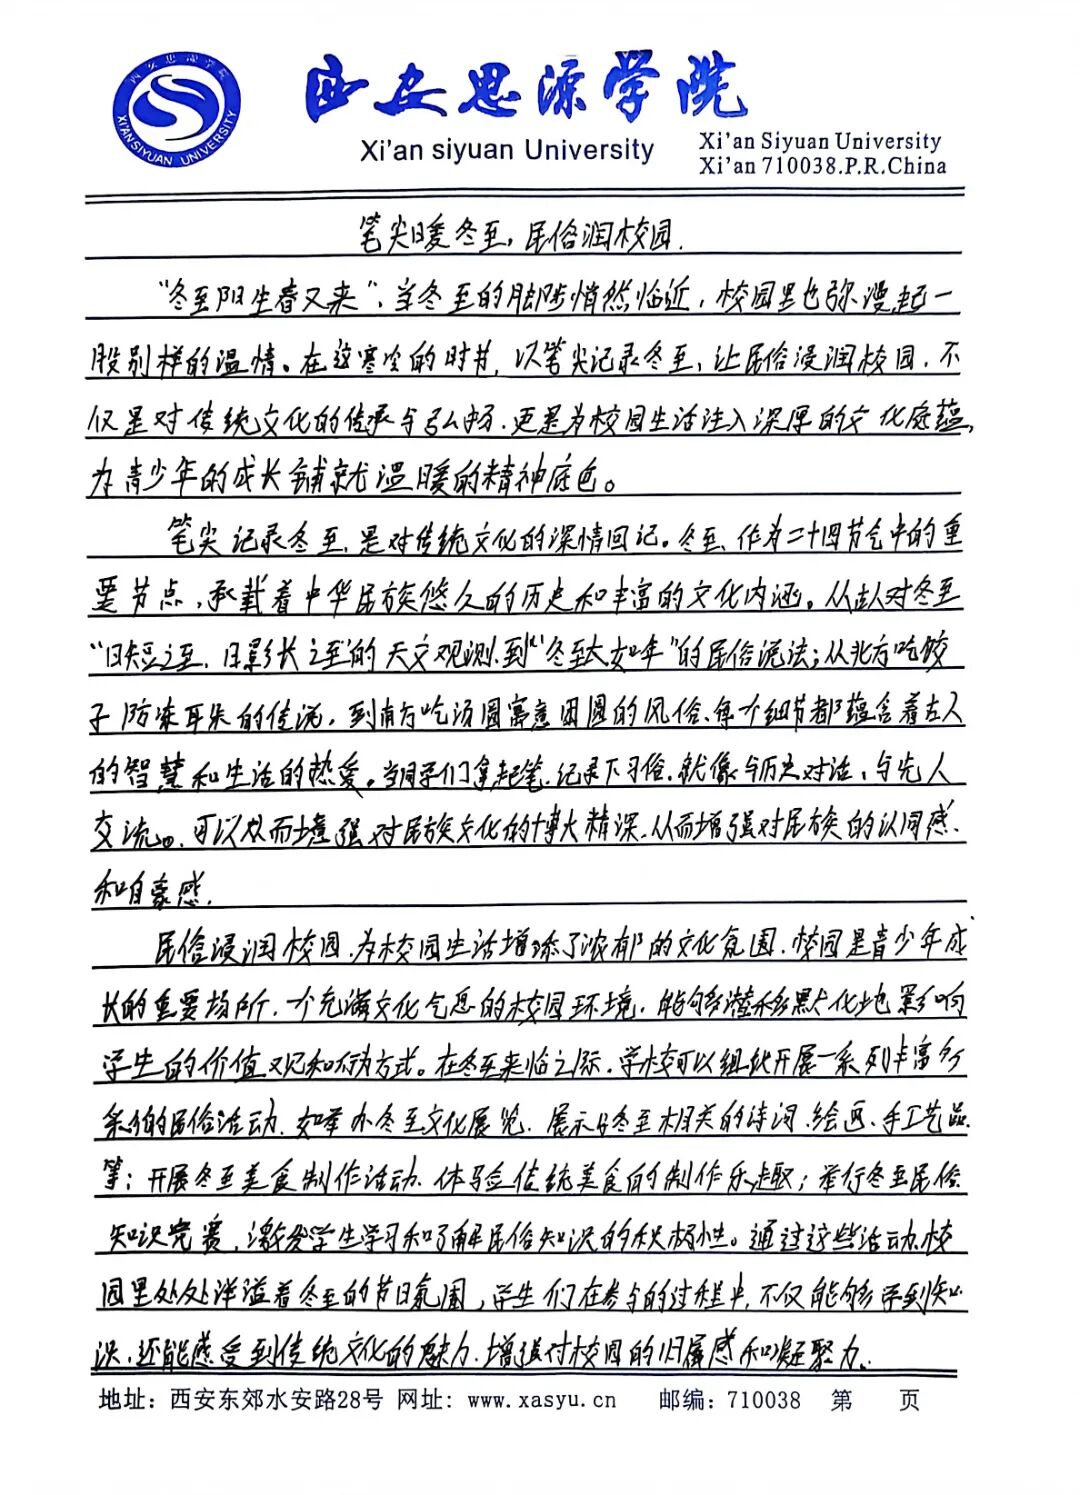 西安思源学院
XI'AN SIYUAN UNIVERSITY
西安思源学院
Xi'an siyuan University
Xi'an Siyuan University
Xi'an 710038.P.R.China
笔尖暖冬至，民俗润校园.
“冬至阳生春又来”，当冬至的脚步悄然临近，校园里也弥漫起一
股别样的温情。在这寒冷的时节，以笔尖记录冬至，让民俗浸润校园，不
仅是对传统文化的传承与弘扬，更是为校园生活注入深厚的文化底蕴，
为青少年的成长铺就温暖的精神底色。
笔尖记录冬至，是对传统文化的深情回记。冬至，作为二十四节气中的重
要节点，承载着中华民族悠久的历史和丰富的文化内涵。从古人对冬至
“日短之至，日影长之至”的天文观测，到“冬至大如年”的民俗说法；从北方吃饺
子防冻耳朵的传说，到南方吃汤圆寓意团圆的风俗，每个细节都蕴含着古人
的智慧和生活的热爱。当同学们拿起笔，记录下习俗，就像与历史对话，与先人
交流。可以从而增强对民族文化的博大精深，从而增强对民族的认同感、
和自豪感.
民俗浸润校园，为校园生活增添了浓郁的文化氛围，校园是青少年成
长的重要场所，一个充满文化气息的校园环境，能够潜移默化地影响
学生的价值观和行为方式。在冬至来临之际，学校可以组织开展一系列丰富多
彩的民俗活动，如举办冬至文化展览，展示与冬至相关的诗词、绘画、手工艺品
等；开展冬至美食制作活动，体验传统美食的制作乐趣；举行冬至民俗
知识竞赛，激发学生学习和了解民俗知识的积极性。通过这些活动，校
园里处处洋溢着冬至的节日氛围，学生们在参与的过程中，不仅能够学到知
识，还能感受到传统文化的魅力，增强对校园的归属感和凝聚力.
地址：西安东郊水安路28号 网址：www.xasyu.cn 邮编：710038 第 页